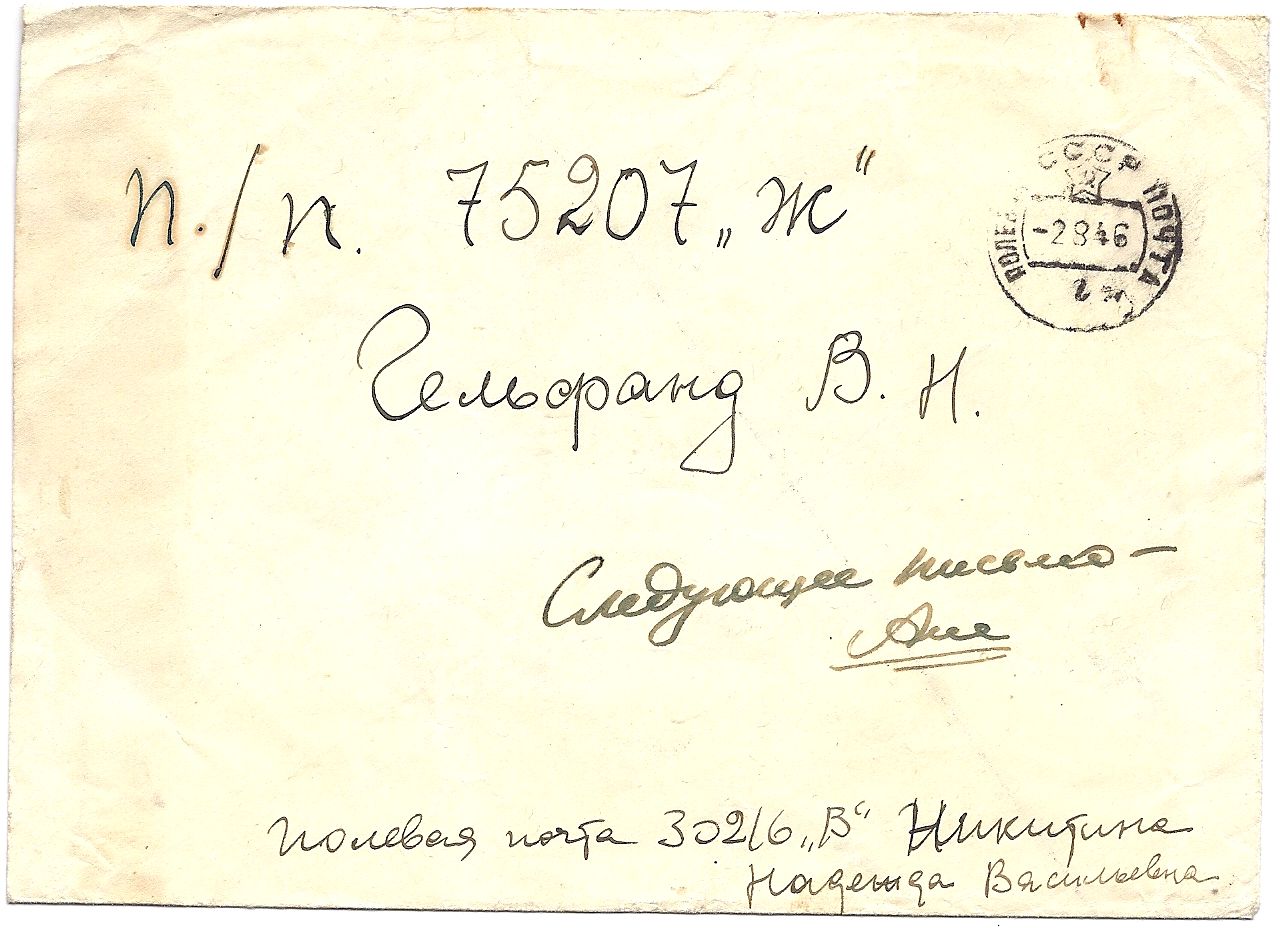 п./п. 75207 „Ж“
СССР
ПОЛЕВАЯ ПОЧТА
-2 8 46
Гельфанд В. Н.
Следующее письмо –
Ане
Полевая почта 30216 „В“ Никитина
Надежда Васильевна